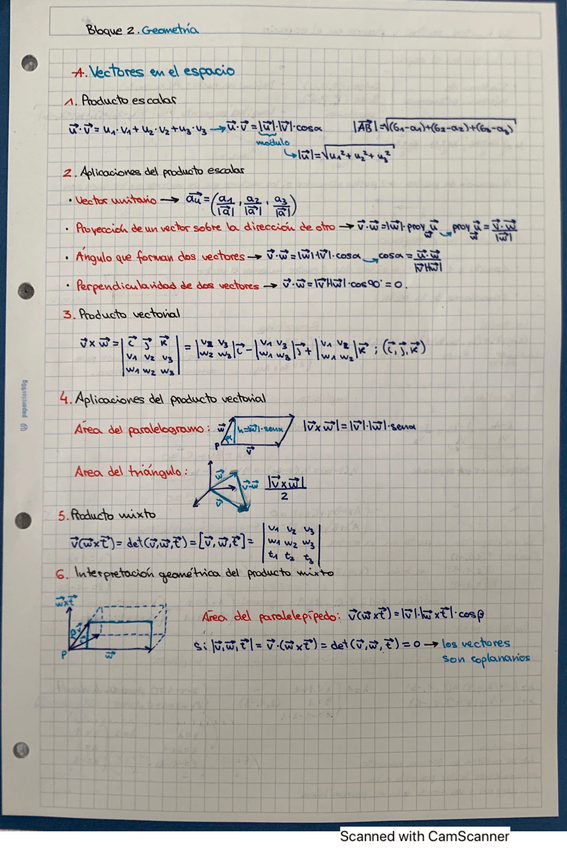 Bloque 2. Geometría
A. Vectores en el espacio
1. Producto escalar
u⃗·v⃗ = u₁·v₁+u₂·v₂+u₃·v₃ → u⃗·v⃗ = |u⃗|·|v⃗|·cosα |AB⃗| = √(b₁-a₁)+(b₂-a₂)+(b₃-a₃)
módulo
↳ |u⃗| = √u₁²+u₂²+u₃²
2. Aplicaciones del producto escalar
· Vector unitario → a⃗u = (a₁/|a⃗|, a₂/|a⃗|, a₃/|a⃗|)
· Proyección de un vector sobre la dirección de otro → v⃗·w⃗ = |w⃗|·prov_w⃗ u⃗ → prov_w⃗ u⃗ = v⃗·w⃗/|w⃗|
· Ángulo que forman dos vectores → v⃗·w⃗ = |w⃗|·|v⃗|·cosα → cosα = u⃗·w⃗/|v⃗|·|w⃗|
· Perpendicularidad de dos vectores → v⃗·w⃗ = |v⃗|·|w⃗|·cos90° = 0.
3. Producto vectorial
v⃗ x w⃗ = |i⃗ j⃗ k⃗; v₁ v₂ v₃; w₁ w₂ w₃| = |v₂ v₃; w₂ w₃| i⃗ - |v₁ v₃; w₁ w₃| j⃗ + |v₁ v₂; w₁ w₂| k⃗ ; (i⃗, j⃗, k⃗)
4. Aplicaciones del producto vectorial
Área del paralelogramo: w⃗ h=|w⃗|·senα |v⃗ x w⃗| = |v⃗|·|w⃗|·senα
P α v⃗
Area del triángulo: w⃗ v⃗-w⃗ v⃗ |v⃗ x w⃗|/2
5. Producto mixto
v⃗(w⃗ x t⃗) = det(v⃗, w⃗, t⃗) = [v⃗, w⃗, t⃗] = |v₁ v₂ v₃; w₁ w₂ w₃; t₁ t₂ t₃|
6. Interpretación geométrica del producto mixto
w⃗ x t⃗
Área del paralelepípedo: v⃗(w⃗ x t⃗) = |v⃗|·|w⃗ x t⃗|·cosβ
P w⃗
Si |v⃗, w⃗, t⃗| = v⃗·(w⃗ x t⃗) = det(v⃗, w⃗, t⃗) = 0 → los vectores
son coplanarios
Scanned with CamScanner